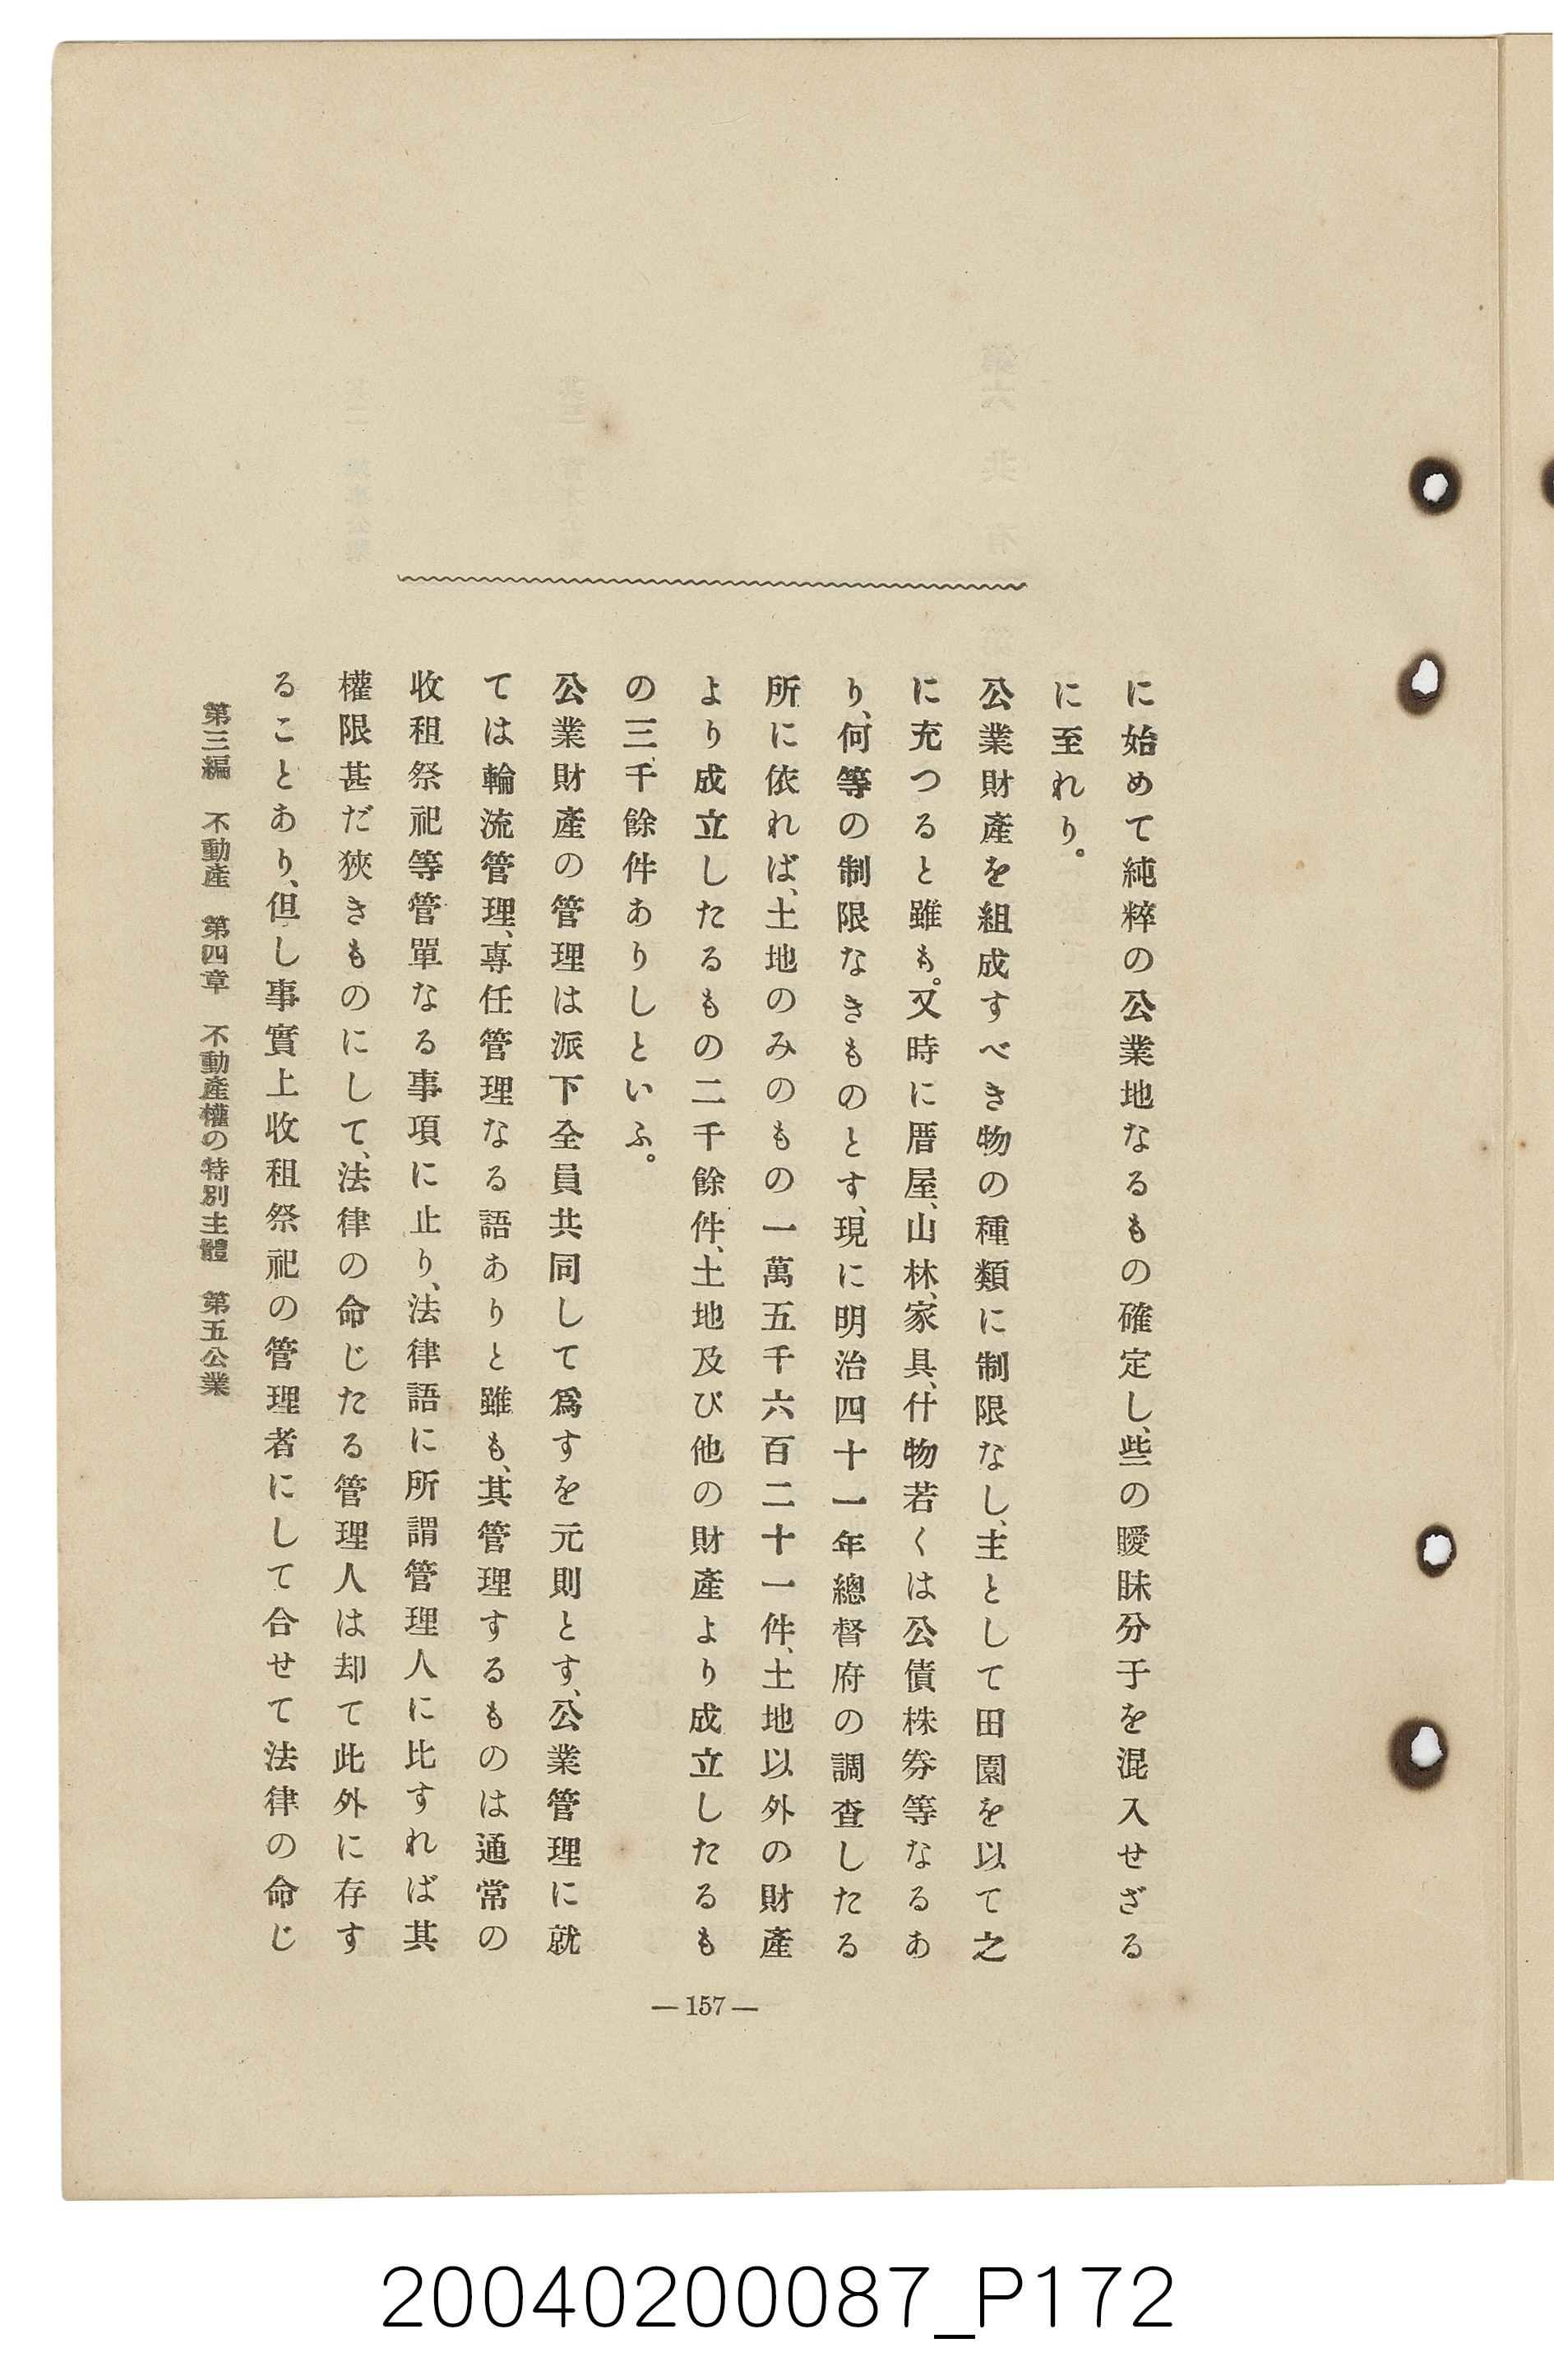 に始めて純粹の公業地なるもの確定し、些の曖昧分子を混入せざる
に至れり。
公業財產を組成すべき物の種類に制限なし、主として田園を以て之
に充つると雖も。又時に厝屋、山林、家具、什物若くは公債株券等なるあ
り、何等の制限なきものとす、現に明治四十一年總督府の調査したる
所に依れば、土地のみのもの一萬五千六百二十一件、土地以外の財產
より成立したるもの二千餘件、土地及び他の財產より成立したるも
の三千餘件ありしといふ。
公業財產の管理は派下全員共同して爲すを元則とす、公業管理に就
ては輪流管理、專任管理なる語ありと雖も、其管理するものは通常の
收租祭祀等管單なる事項に止り、法律語に所謂管理人に比すれば其
權限甚だ狹きものにして、法律の命じたる管理人は却て此外に存す
ることあり、但し事實上收租祭祀の管理者にして合せて法律の命じ
第三編 不動產 第四章 不動產權の特別主體 第五公業
—157—
20040200087_P172